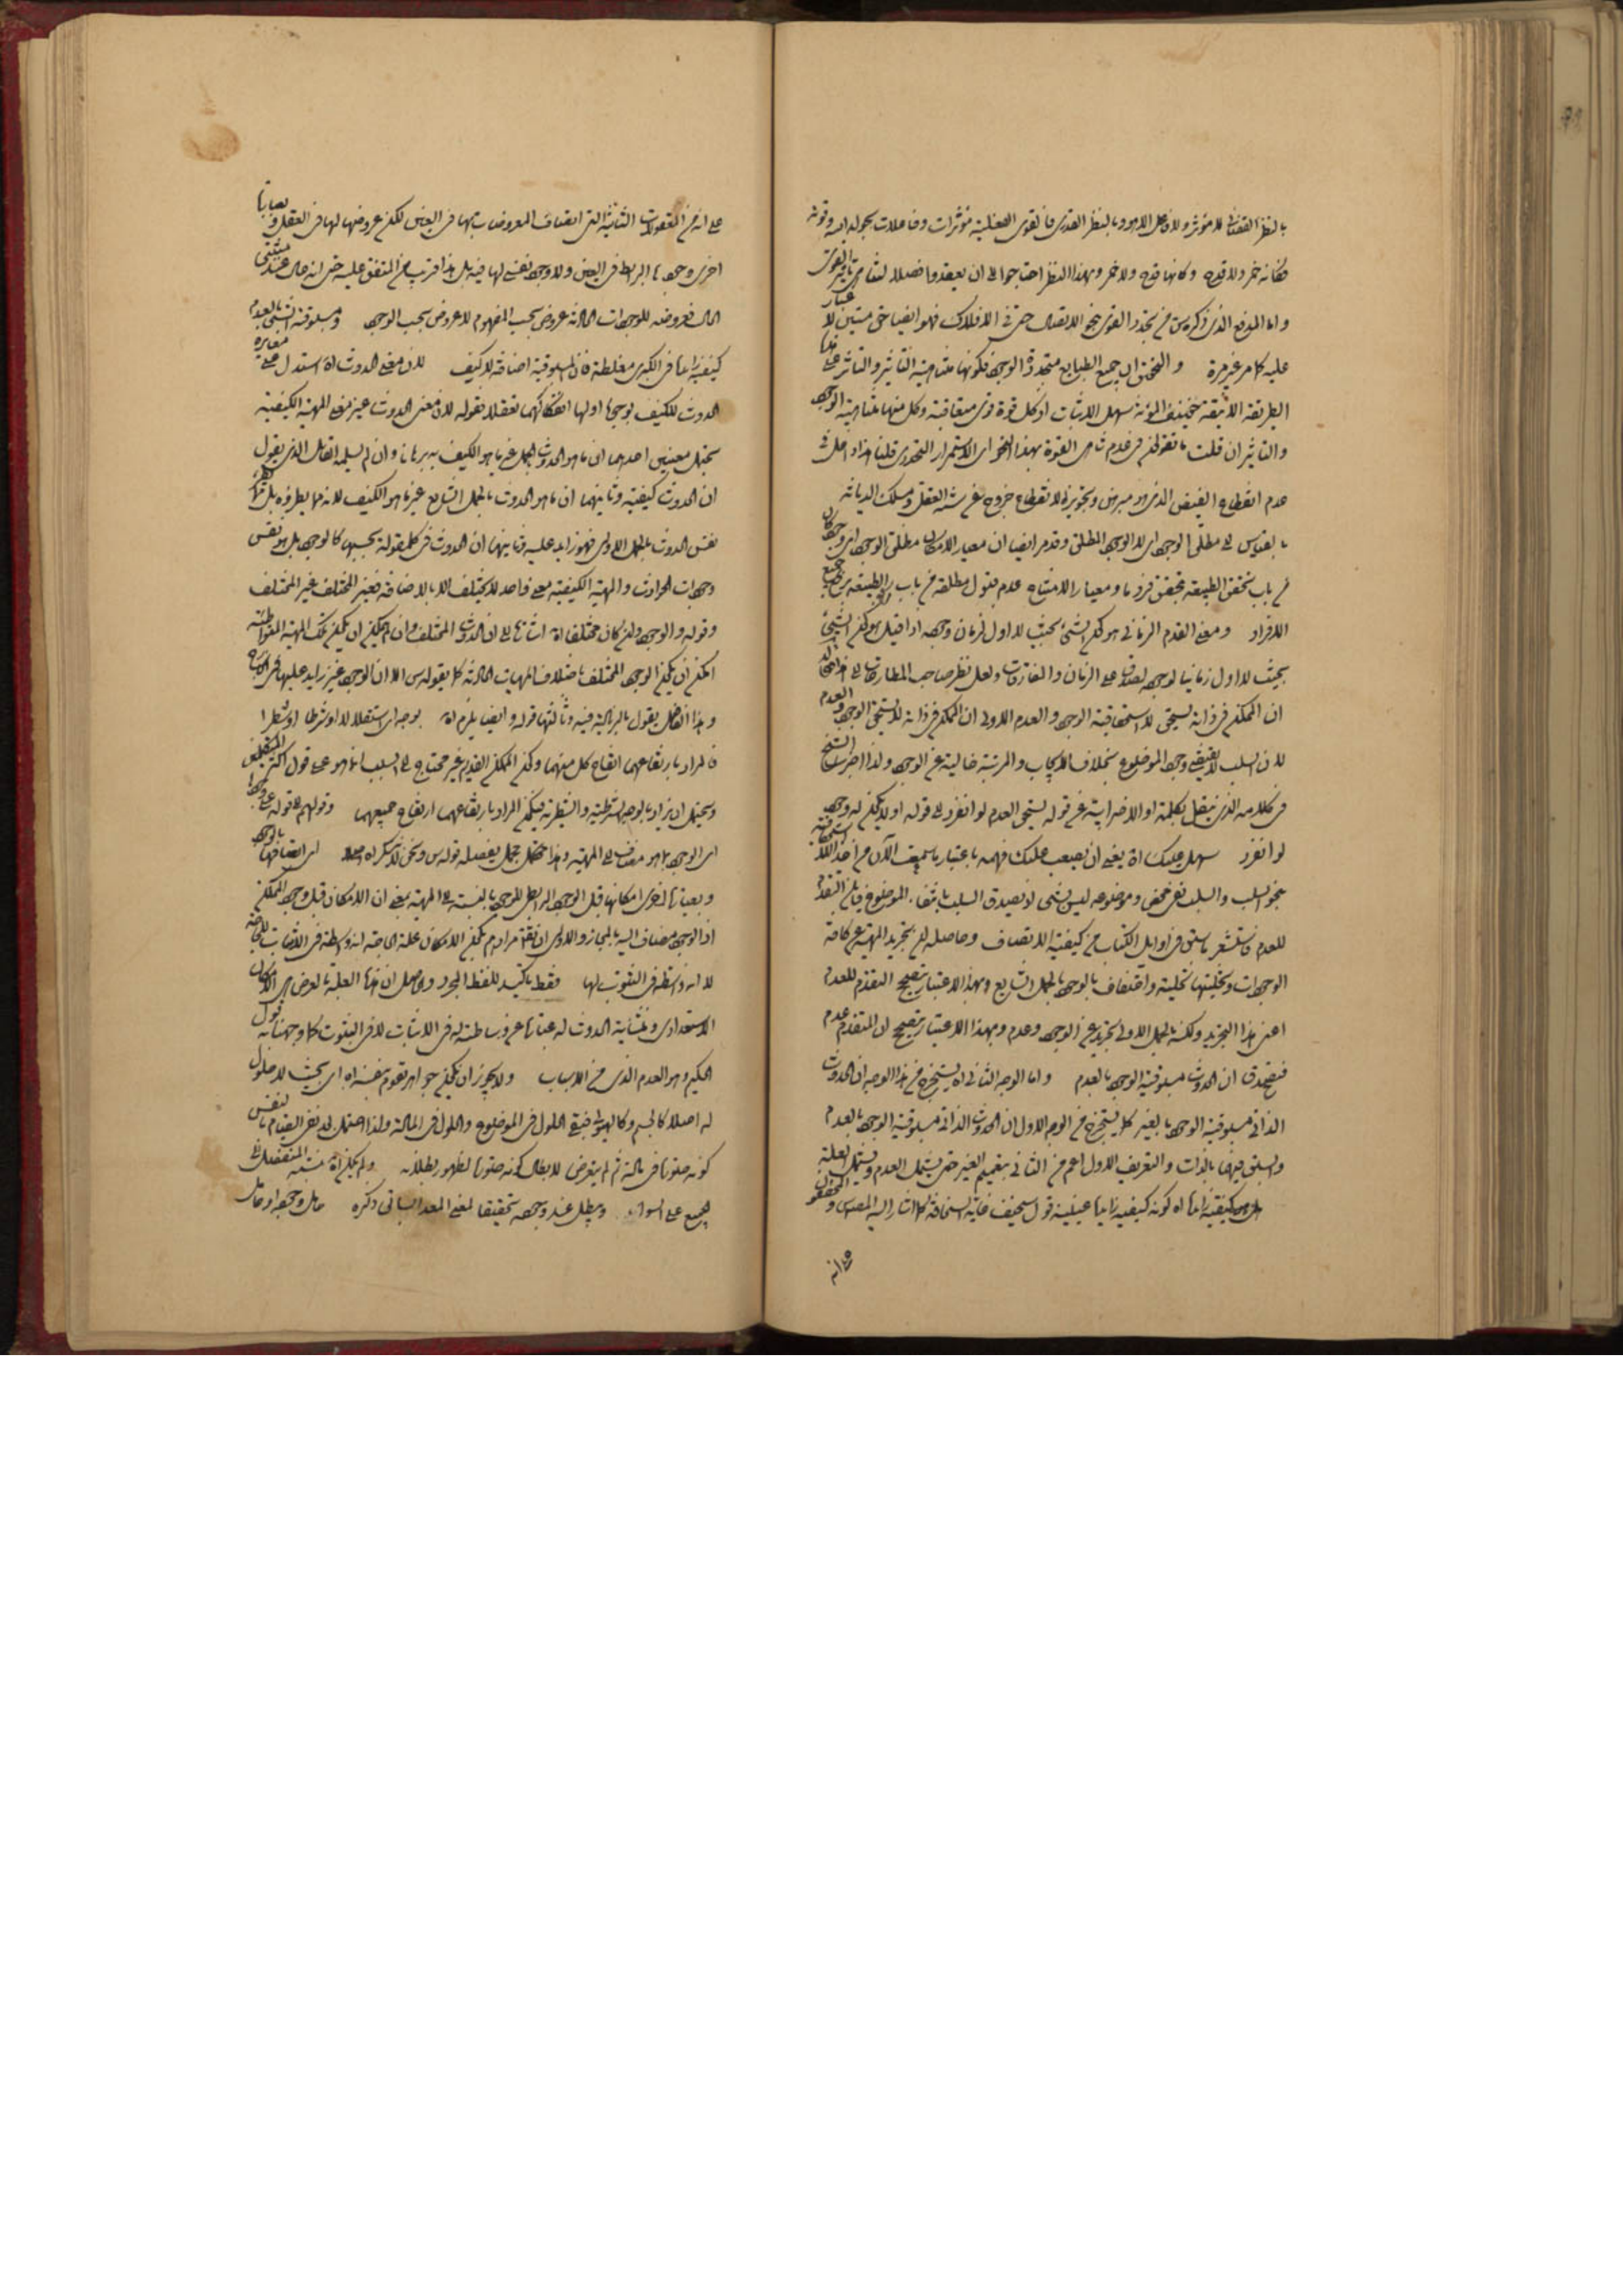 بالنظر القضائى لا مؤثر ولا فاعل الا هو وبالنظر القدرى فالقوى الفعلية مؤثرات وفاعلات بحول الله وقوته
فكانه خمر ولا قدح وكانها قدح ولا خمر وبهذا النظر احتاجوا الى ان يعقدوا فصلا لتناهى تاثير القوى
واما المدفع الذى ذكره س من تجدد القوى بنحو الاتصال حتى فى الافلاك فهو ايضا حق متين لا غبار
عليه كما مر غير مرة والتحقيق ان جميع الطبايع متجددة الوجود فكونها متناهية التأثير والتأثر على هذا
الطريقة الانيقة خفيف المؤنة سهل الاثبات اذ كل قوة قوى متعاقبة وكل منها متناهية الوجود
والتاثير ان قلت ما تقولون فى عدم تناهى القوة بهذا النحو اى الاستمرار التجددى قلنا هذا داخل فى
عدم انقطاع الفيض الذى هو مبرهن وتجويز الانقطاع خروج عن سنة العقل ومسلك الديانة
بالقياس الى مطلق الوجود اى لا الوجود المطلق وقد مر ايضا ان معيار الامكان مطلق الوجود اى وجود كان
من باب تحقق الطبيعة بتحقق فرد ما ومعيار الامتناع عدم قبول مطلقه من باب رفع الطبيعة برفع جميع
الافراد ومعنى القدم الزمانى هو كون الشىء بحيث لا اول لزمان وجوده اذا قيل هو كون الشىء
بحيث لا اول زمانيا لوجوده لصدق على الزمان والمفارقات ولعل نظر صاحب المطارحات الى هذا
ان الممكن فى ذاته يستحق لا استحقاقية الوجود والعدم الاولى ان الممكن فى ذاته لا يستحق الوجود والعدم
لان السلب لا يقتضى وجود الموضوع بخلاف الايجاب والمرتبة خالية عن الوجود ولذا اضرب الشيخ
فى كلامه الذى ينقل بكلمة او الاضرابية عن قوله يستحق العدم لو انفرد الى قوله او لا يكون له وجود
لو انفرد سهل عليك اه يعنى ان يصعب عليك فهمه باعتبار ما سمعت الآن من اخذ اللا استحقاقية
بنحو السلب والسلب نفى محض وموضوعه ليس بشىء اذ يصدق السلب بانتفاء الموضوع فاين التقدم
للعدم فاستشعر بما سبق فى اوايل الكتاب من كيفية الاتصاف وحاصله ان تجريد المهية عن كافة
الوجودات وتخليتها تحلية واتصاف بالوجود بالحمل الشايع وبهذا الاعتبار يصحح التقدم للعدم
اعنى هذا التجريد ولكنه بالحمل الاولى تجريد عن الوجود وعدم وبهذا الاعتبار يصحح ان المتقدم عدم
فتصدق ان الحدوث مسبوقية الوجود بالعدم واما الوجه الثانى اه يستخرج من هذا الوجه ان الحدوث
الذاتى مسبوقية الوجود بالغير كما يستخرج من الوجه الاول ان الحدوث الذاتى مسبوقية الوجود بالعدم
والسبق فيهما بالذات والتعريف الاول اعم من الثانى بتعميم الغير حتى يشمل العدم ويشمل العلة
كيفية زايدة اه كونه كيفية زايدة عينية قول سخيف غاية السخافة كما اشار اليه المصنف س والمحققون
على انه من المعقولات الثانية التى اتصاف المعروضات بها فى العين لكن عروضها لها فى العقل وبعبارة
اخرى وجودها الرابط فى العين ولا وجود نفسى لها فيه بل هذا قريب من المتفق عليه حتى انه
الحال فعروضه للوجودات الحادثة عروض بحسب المفهوم لا عروض بحسب الوجود ومسبوقية الشىء بالعدم
كيفية زايدة فى الكبرى مغلطة فان المسبوقية اضافة لا كيف لان معنى الحدوث اه استدل على مغايرة
الحدوث للكيف بوجوه اولها انفكاكهما تعقلا بقوله لان معنى الحدوث غير معنى المهية الكيفية
يحتمل معنيين احدهما ان ما هو الحدوث بالحمل غير ما هو الكيف به برهانا وان لم يسلمه القائل الذى يقول
ان الحدوث كيفية وثانيهما ان ما هو الحدوث بالحمل الشايع غير ما هو الكيف
نفس الحدوث بالحمل الاولى فهو زايد عليه وثانيهما ان الحدوث فى كل مقولة بحسبها كالوجود بل هو نفس
وجودات الحوادث والمهية الكيفية معنى واحد لا يختلف الا بالاضافة فغير المختلف غير المختلف
وقوله والوجود وان كان مختلفا اه اشارة الى ان الحدوث المختلف وان لم يمكن ان يكون تلك المهية المتواطئة
امكن ان يكون الوجود المختلف باختلاف المهيات الحادثة كما يقوله س الا ان الوجود غير زايد عليها فى
وهذا القائل يقول بالزيادة فيه وثالثها قوله وايضا يلزم اه بوجه اى استقلالا او شرطا او شطرا
فالمراد بارتفاعهما ارتفاع كل منهما وكون الممكن القديم غير محتاج الى السبب انما هو على قول اكثر المتكلمين
ويحتمل ان يراد بالوجه الشرطية والشطرية فيكون المراد بارتفاعهما ارتفاع جميعهما وقولهم
اى الوجود بما هو مضاف الى المهية وهذا مجمل يفصله قوله س ونحن لا ننكر اه اى اتصافها بالوجود
وبعبارة اخرى امكانها قبل الوجود الرابطى للوجود بالنسبة الى المهية بمعنى ان الامكان قبل وجود الممكن
اذ الوجود مضاف اليه بالمجاز والاولى ان يقال مرادهم بكون الامكان علة الحاجة انه واسطة فى الاثبات للحاجة
لا انه واسطة فى الثبوت لها فقط تاكيد للفظ المجرد والحاصل ان هذه العلة بالعرض هى الامكان
الاستعدادى ومنشأية الحدوث له عبارة عن وساطته له فى الاثبات لا فى الثبوت كما وجهنا به قول
الحكيم وهو العدم الذى من الاسباب ولا يجوز ان يكون جواهر تقوم بنفسها اه اى بحيث لا حلول
له اصلا كالجسم وكالهيولى فيبقى الحلول فى الموضوع والحلول فى المادة ولذا احتمل بعد نفى القيام بالنفس
كونه صورة فى مادة ثم لم يتعرض لابطال كونه صورة لظهور بطلانه ولم يكن اه
الجميع على السواء ويبطل عند وجوده تحقيقا لمعنى المعد السابق ذكره حامل وجوده او حامل